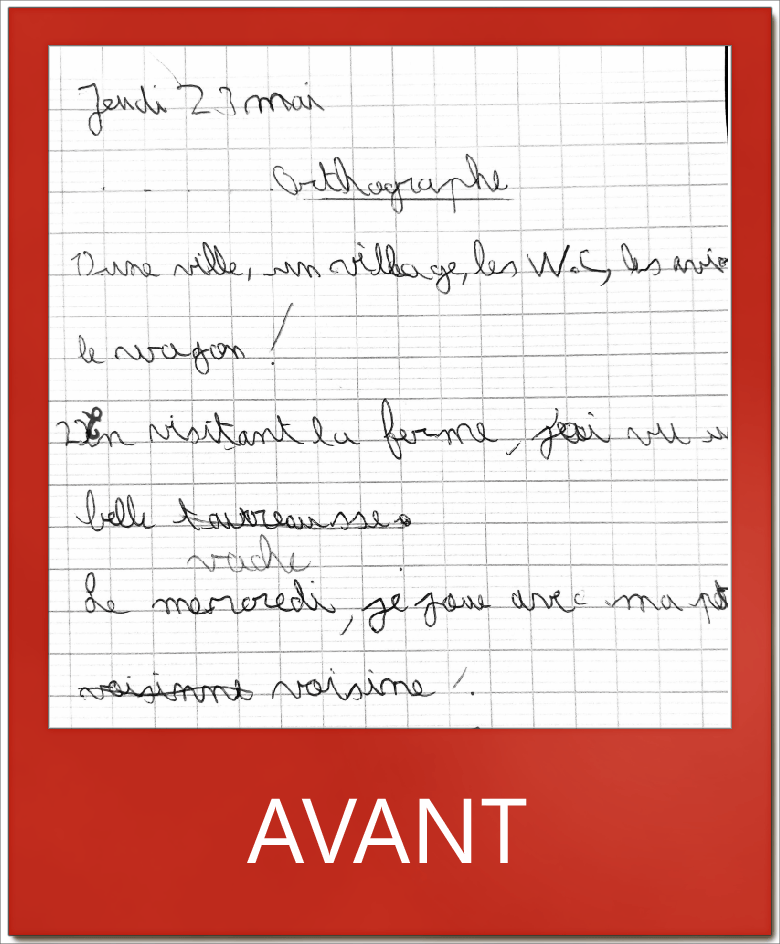 Jeudi 23 mai
Orthographe
1) une ville, un village, les W.C, les
le wagon
2) En visitant la ferme, j'ai vu u
belle taureausse.
vache
Le mercredi, je joue avec ma pet
voisinne voisine.
AVANT